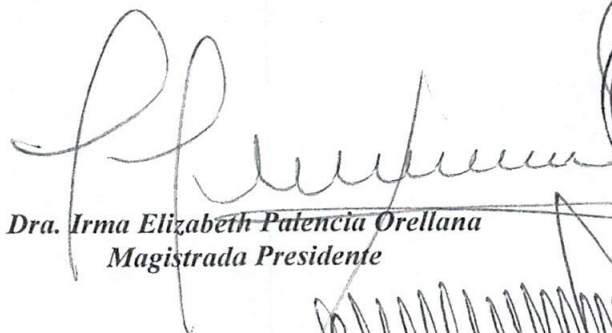 Dra. Irma Elizabeth Palencia Orellana
Magistrada Presidente